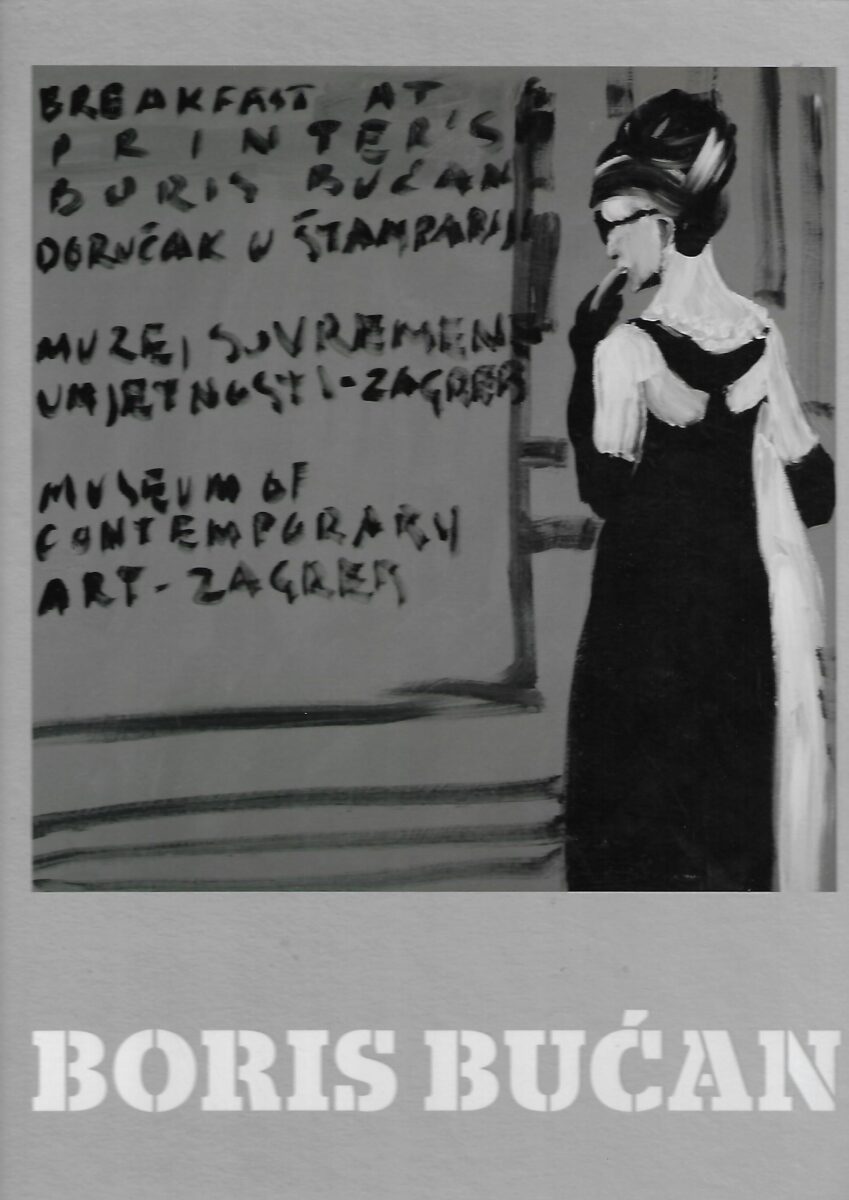 BREAKFAST AT
PRINTER'S
BORIS BUĆAN
DORUČAK U ŠTAMPARIJI
MUZEJ SUVREMENE
UMJETNOSTI-ZAGREB
MUSEUM OF
CONTEMPORARY
ART-ZAGREB
BORIS BUĆAN